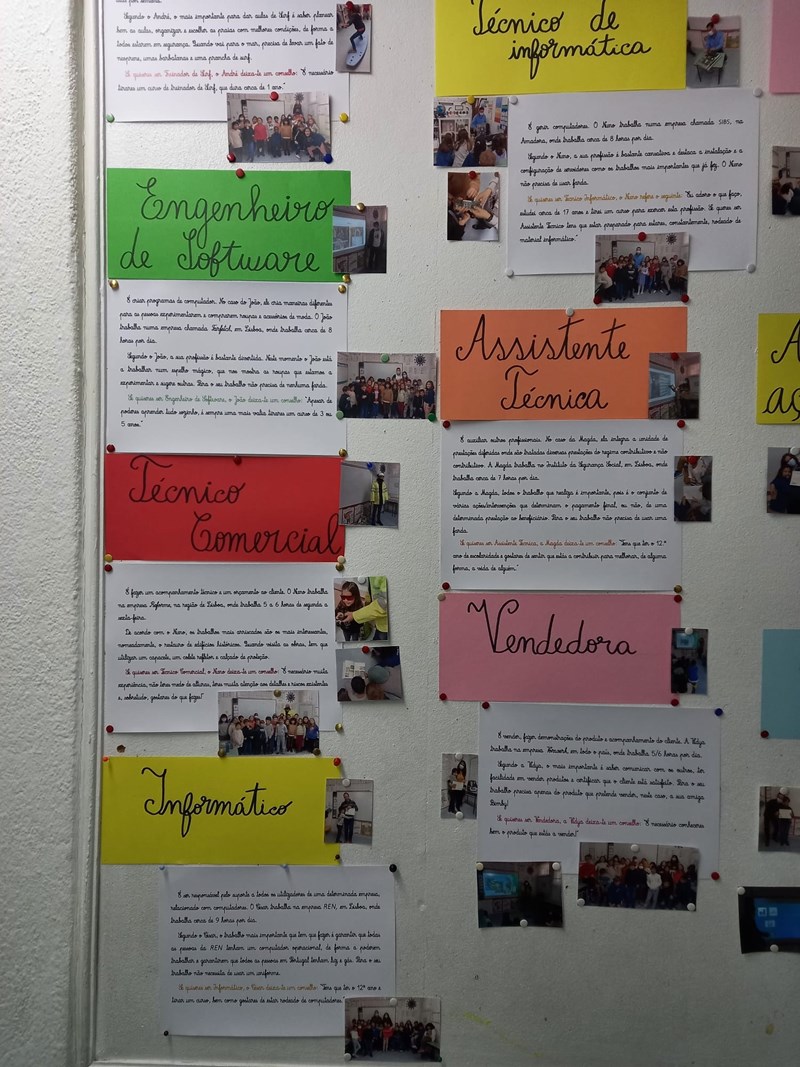 Segundo o André, o mais importante para dar aulas de Surf é saber planear
bem as aulas, organizar e escolher as praias com melhores condições, de forma a
todos estarem em segurança. Quando vai para o mar, precisa de levar um fato de
neoprene, umas barbatanas e uma prancha de surf.
Se quiseres ser Treinador de Surf, o André deixa-te um conselho: "É necessário
tirares um curso de treinador de Surf, que dura cerca de 1 ano."
Engenheiro
de Software
É criar programas de computador. No caso do João, ele cria maneiras diferentes
para as pessoas experimentarem e comprarem roupas e acessórios de moda. O João
trabalha numa empresa chamada Farfetch, em Lisboa, onde trabalha cerca de 8
horas por dia.
Segundo o João, a sua profissão é bastante divertida. Neste momento o João está
a trabalhar num espelho mágico, que nos mostra as roupas que estamos a
experimentar e sugere outras. Para o seu trabalho não precisa de nenhuma farda.
Se quiseres ser Engenheiro de Software, o João deixa-te um conselho: "Apesar de
poderes aprender tudo sozinho, é sempre uma mais valia tirares um curso de 3 ou
5 anos."
Técnico
Comercial
É fazer um acompanhamento técnico e um orçamento ao cliente. O Nuno trabalha
na empresa, na região de Lisboa, onde trabalha 5 a 6 horas de segunda a
sexta-feira.
De acordo com o Nuno, os trabalhos mais arriscados são os mais interessantes,
nomeadamente, o restauro de edifícios históricos. Quando visita as obras, tem que
utilizar um capacete, um colete refletor e calçado de proteção.
Se quiseres ser Técnico Comercial, o Nuno deixa-te um conselho: "É necessário muita
experiência, não teres medo de alturas, teres muita atenção aos detalhes e riscos existentes
e, sobretudo, gostares do que fazes!"
Informático
É ser responsável pelo suporte a todos os utilizadores de uma determinada empresa,
relacionado com computadores. O César trabalha na empresa REN, em Lisboa, onde
trabalha cerca de 9 horas por dia.
Segundo o César, o trabalho mais importante que tem que fazer é garantir que todas
as pessoas da REN tenham um computador operacional, de forma a poderem
trabalhar e garantirem que todas as pessoas em Portugal tenham luz e gás. Para o seu
trabalho não necessita de usar um uniforme.
Se quiseres ser Informático, o César deixa-te um conselho: "Tens que ter o 12º ano e
tirar um curso, bem como gostares de estar rodeado de computadores."
Técnico de
informática
É gerir computadores. O Nuno trabalha numa empresa chamada SIBS, na
Amadora, onde trabalha cerca de 8 horas por dia.
Segundo o Nuno, a sua profissão é bastante cansativa e destaca a instalação e a
configuração de servidores como os trabalhos mais importantes que já fez. O Nuno
não precisa de usar farda.
Se quiseres ser Técnico Informático, o Nuno refere o seguinte: "Eu adoro o que faço,
estudei cerca de 17 anos e tirei um curso para exercer esta profissão. Se queres ser
Assistente Técnico tens que estar preparado para estares, constantemente, rodeado de
material informático."
Assistente
Técnica
É auxiliar outros profissionais. No caso da Magda, ela integra a unidade de
prestações diferidas onde são tratadas diversas prestações do regime contributivo e não
contributivo. A Magda trabalha no Instituto da Segurança Social, em Lisboa, onde
trabalha cerca de 7 horas por dia.
Segundo a Magda, todo o trabalho que realiza é importante, pois é o conjunto de
várias ações/intervenções que determinam o pagamento final, ou não, de uma
determinada prestação ao beneficiário. Para o seu trabalho não precisa de usar uma
farda.
Se quiseres ser Assistente Técnica, a Magda deixa-te um conselho: "Tens que ter o 12.º
ano de escolaridade e gostares de sentir que estás a contribuir para melhorar, de alguma
forma, a vida de alguém."
Vendedora
É vender, fazer demonstrações do produto e acompanhamento do cliente. A
trabalha na empresa, em todo o país, onde trabalha 5/6 horas por dia.
Segundo a, o mais importante é saber comunicar com os outros, ter
facilidade em vender produtos e certificar que o cliente está satisfeito. Para o seu
trabalho precisa apenas do produto que pretende vender, neste caso, a sua amiga
Se quiseres ser Vendedora, a deixa-te um conselho: "É necessário conheceres
bem o produto que estás a vender!"
A
aç